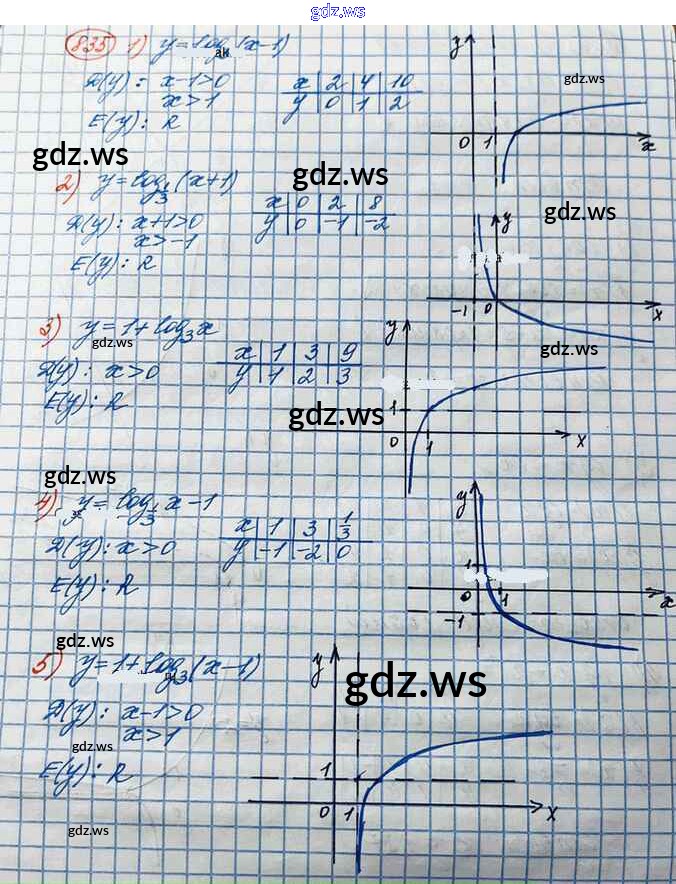 gdz.ws
835 1) y=log (x-1)
D(y): x-1>0
x>1
E(y): R
x 2 4 10
y 0 1 2
y
0 1 x
gdz.ws
gdz.ws
gdz.ws
2) y=log 1/3 (x+1)
D(y): x+1>0
x>-1
E(y): R
x 0 2 8
y 0 -1 -2
gdz.ws
y
-1 0 x
3) y=1+log₃x
gdz.ws
D(y): x>0
E(y): R
x 1 3 9
y 1 2 3
y
1
0 1 x
gdz.ws
gdz.ws
gdz.ws
4) y=log 1/3 x-1
D(y): x>0
E(y): R
x 1 3 1/3
y -1 -2 0
y
1
0 1 x
-1
gdz.ws
5) y=1+log₃(x-1)
gdz.ws
D(y): x-1>0
x>1
gdz.ws
E(y): R
y
1
0 1 x
gdz.ws